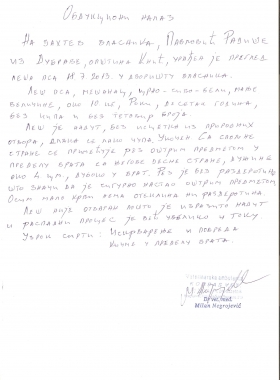 Обдукциони налаз
На захтев власника, Павловић Радише
из Дубраве, општина Кнић, урађен је преглед
леша пса 18.7.2013. у дворишту власника.
Леш пса, мешанац, црно-сиво-бели, мале
величине, око 10 кг, Рики, десетак година,
без чипа и без тетовир броја.
Леш је надут, без исцетка из природних
отвора, длака се лако чупа. Са спољне
стране се примећује рез оштрим предметом у
пределу врата са његове десне стране, дужине
око 4 цм, дубоко у врат. Рез је без раздеротина
што значи да је сигурно настао оштрим предметом.
Осим мало крви нема отеклина ни раздеротина.
Леш није отваран пошто је изразито надут
и распадни процес је већ увелико у току
Узрок смрти: Искрварење и повреда
у пределу врата.
Dr vet. med.
Milan Negrojević